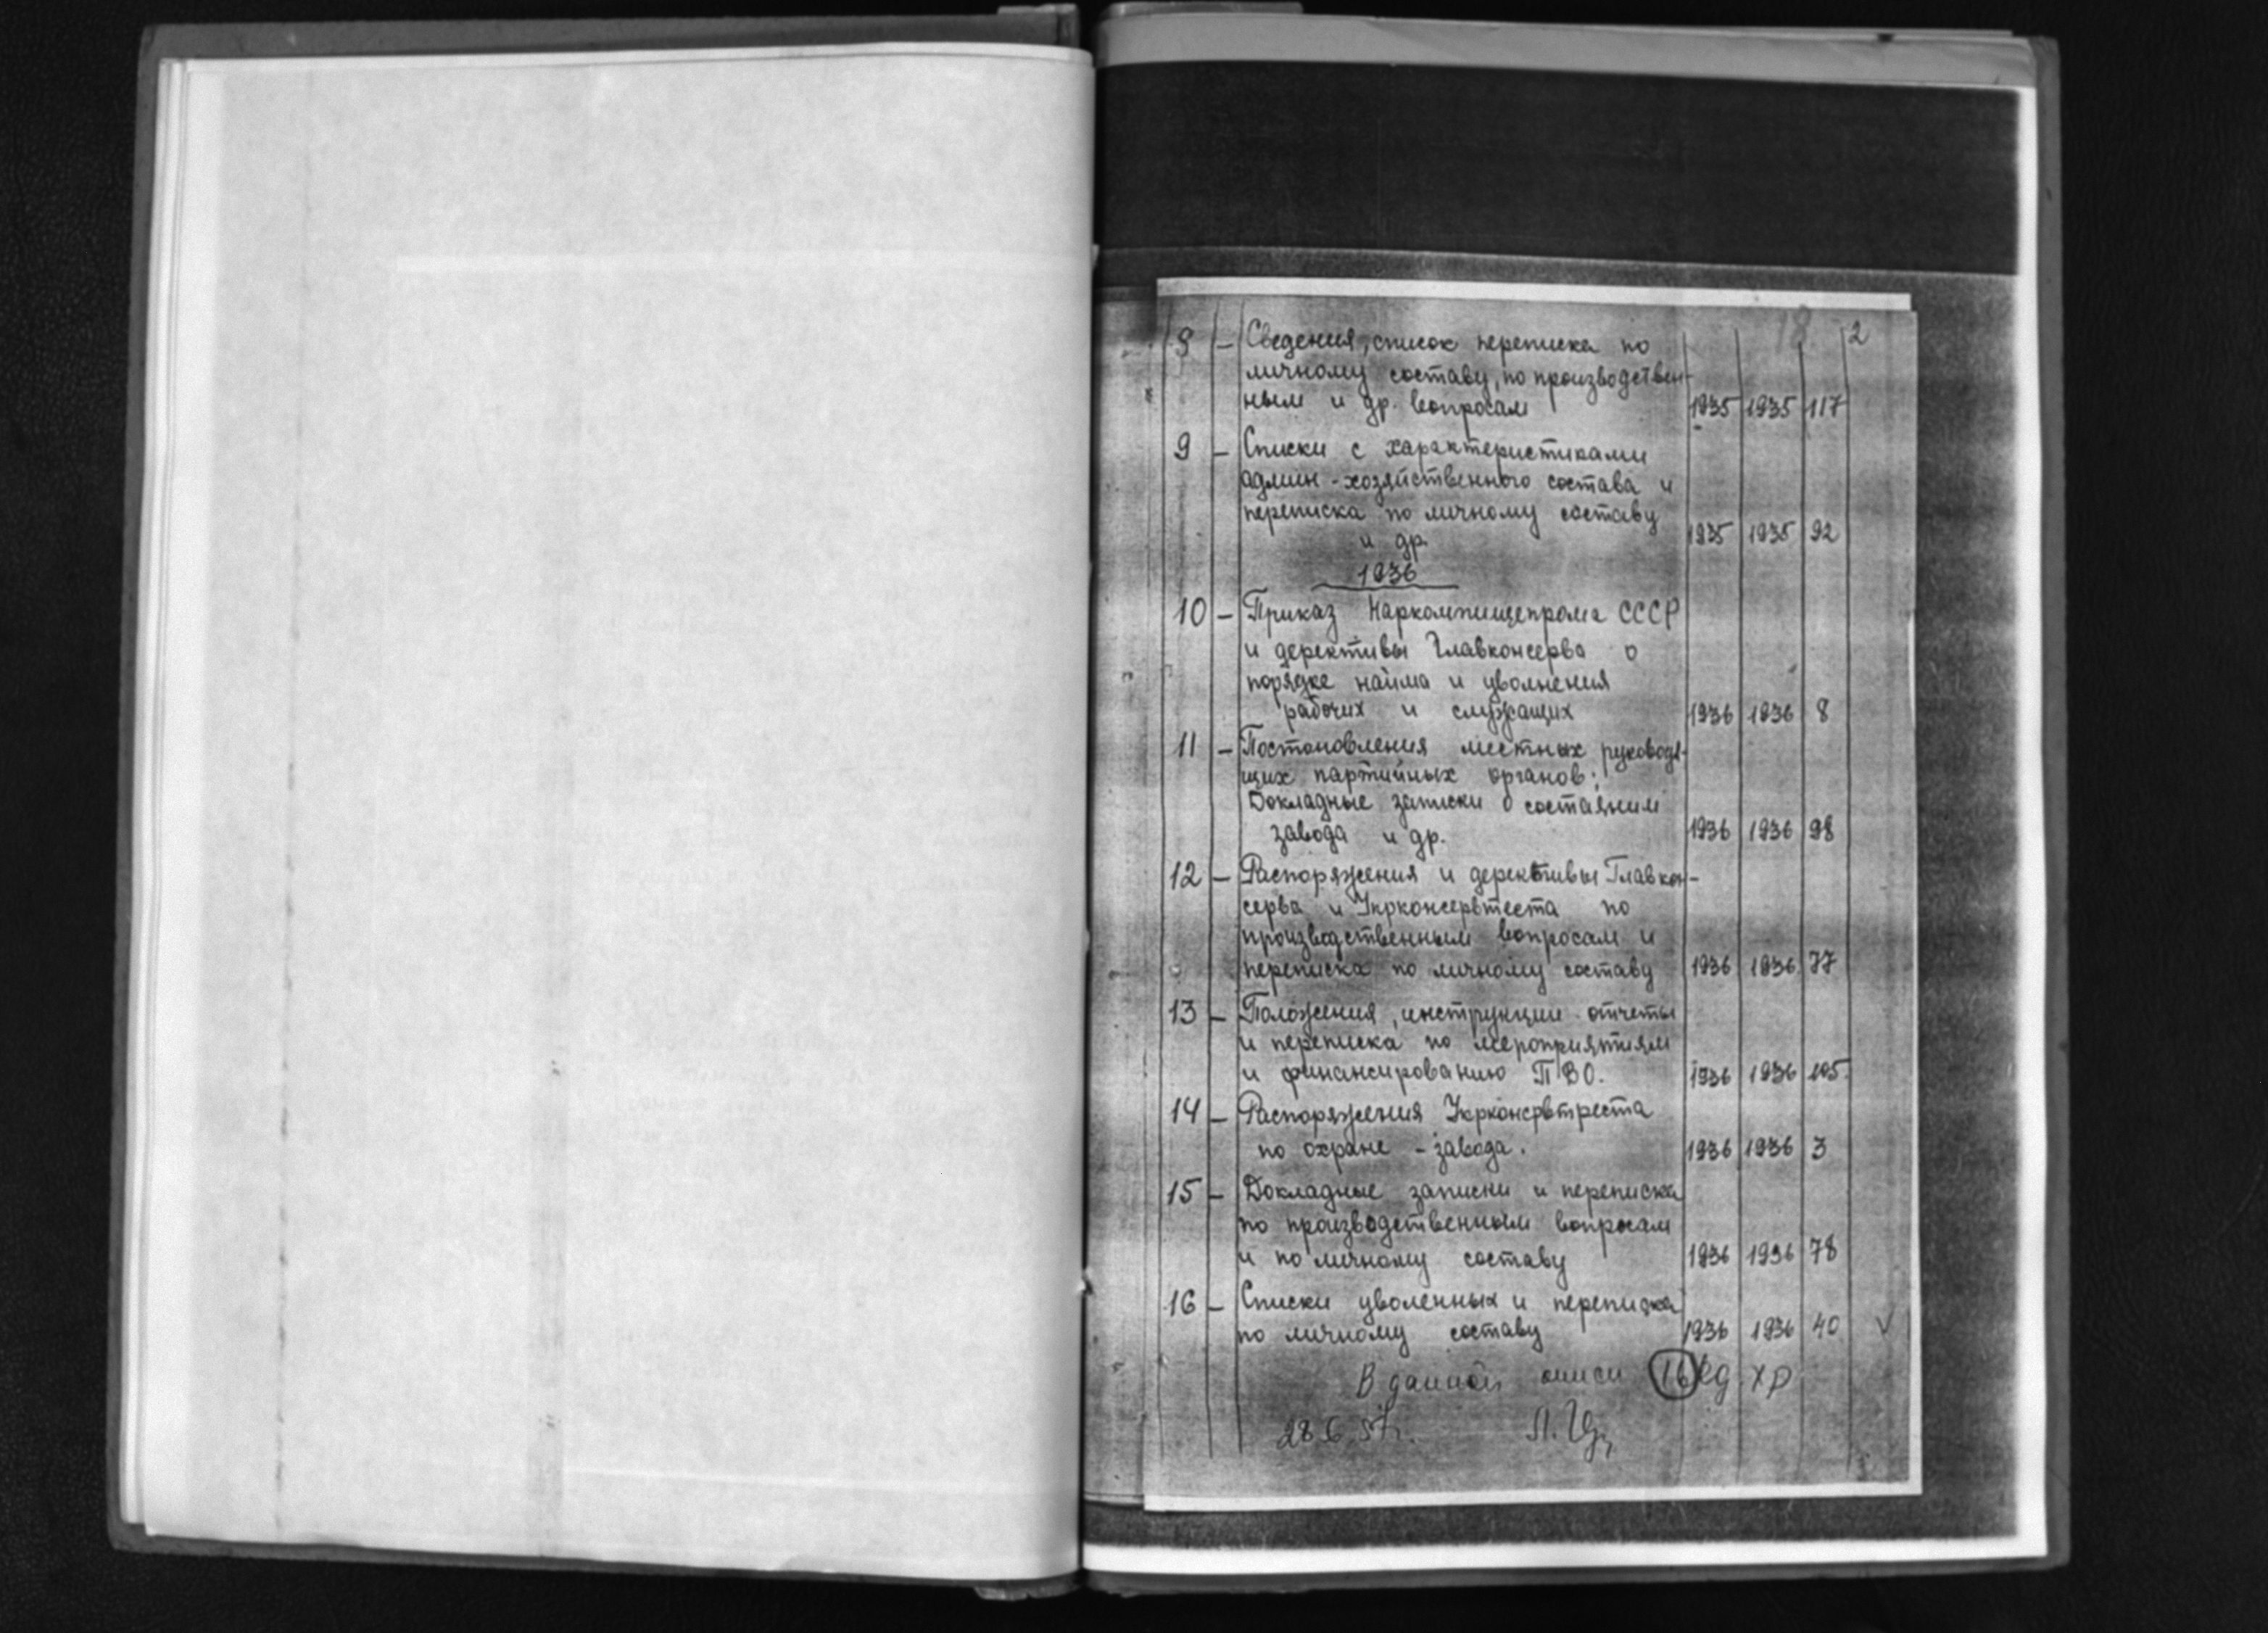 18 2
8 – Сведения, список переписка по
личному составу, по производствен-
ным и др. вопросам 1935 1935 117
9 – Списки с характеристиками
админ-хозяйственного состава и
переписка по личному составу
и др. 1935 1935 92
1936
10 – Приказ Наркомпищепрома СССР
и дерективы Главконсерва о
порядке найма и уволнения
рабочих и служащих 1936 1936 8
11 – Постановления местных руководя-
щих партийных органов;
Докладные записки о состаянии
завода и др. 1936 1936 98
12 – Распоряжения и дерективы Главкон-
серва и Укрконсервтеста по
производственным вопросам и
переписка по личному составу 1936 1936 77
13 – Положения, инструкции отчеты
и переписка по мероприятиям
и финансированию ПВО. 1936 1936 105
14 – Распоряжения Укрконсрвтреста
по охране - завода. 1936 1936 3
15 – Докладные записки и переписка
по производственным вопросам
и по личному составу 1936 1936 78
16 – Списки уволенных и переписка
по личному составу 1936 1936 40 V
В данной описи 16 ед. хр
28.6.57г.